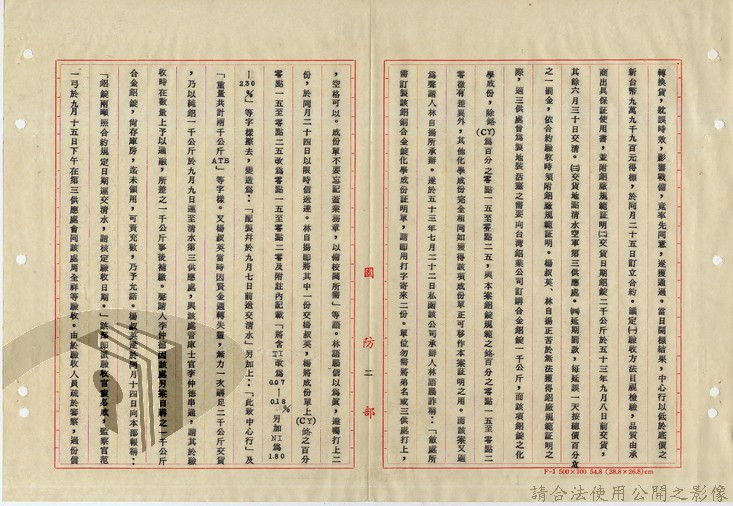 轉換貨,就誤時效,影響戰備,竟率先同意,遂獲通過。當日開標結果,中心行以低於底價之
新台幣九萬九千九百元得標,於同月二十五日訂立合約。議定㈠驗收方法目視檢驗,品質由承
商出具保証使用書,並附鋁廠規範証明㈡交貨日期鋁錠二千公斤於五十三年九月八日前交貨,
其餘六月三十日交清。㈢交貨地點清水空軍第三供應處。㈣延期罰款,每延誤一天按總價百分
之一罰金,依合約驗收時須附鋁廠規範証明。楊叔英、林自揚正苦於無法獲得鋁廠規範証明之
際,適三供應處曾為製地裝活塞之需要向台灣鋁業公司訂購合金鋁錠一千公斤,而該項鋁錠之化
學成份,除鉻(CY)為百分之零點一五至零點二五,與本案鋁錠規範之鉻百分之零點一五至零點二
零微有差異外,其他化學成份完全相同如獲得該項成份單正可移作本案証明之用。而該案又適
為聲請人林自揚所承辦。遂於五十三年七月二十二日私函該公司承辦人林語腸詐稱:「敝處所
需訂製該鋁鋁合金錠化學成份証明單,請即用打字寄來二份。單位勿需將弟名或三供處打上,
國防部
二
,空格可以。成份單不要忘記蓋業務章,以備校閱所需」等語。林語腸信以為真,遂囑打上二
份,於同月二十四日以限時信送達。林自揚即將其中一份交楊叔英,楊將成份單上(CY)鉻之百分
零點一五至零點二五改為零點一五至零點二零及附註內記載「將含TI改為0.07–0.18%另加NI為1.80
–2.30%」等字樣擦去,變造為:「配製幷於九月七日前送交清水」另加上:「此致中心行」及
「重量共計兩千公斤ATB」等字樣。又楊叔英當時因資金週轉失靈,無力一次購足二千公斤交貨
,乃以純鋁一千公斤於九月九日運至清水第三供應處,與該處管庫士官李仲德串通,請其於驗
收時在數量上予以通融,所差之一千公斤事後補繳。聲請人李仲德因該處另案自購之一千公斤
合金鋁錠,尚存庫房,迄未領用,可資充數,乃予允諾。楊叔英遂於同月十四日向本部報稱:
「鋁錠兩噸照合約規定日期運交清水,請核定驗收日期。」該部即派驗收官袁名成,監察官范
一弓於九月十五日下午在第三供應處會同該處周全祥等驗收。由於驗收人員疏於審察,過份信
F-1 500×100 54.8 (38.8×26.8)cm
請合法使用公開之影像